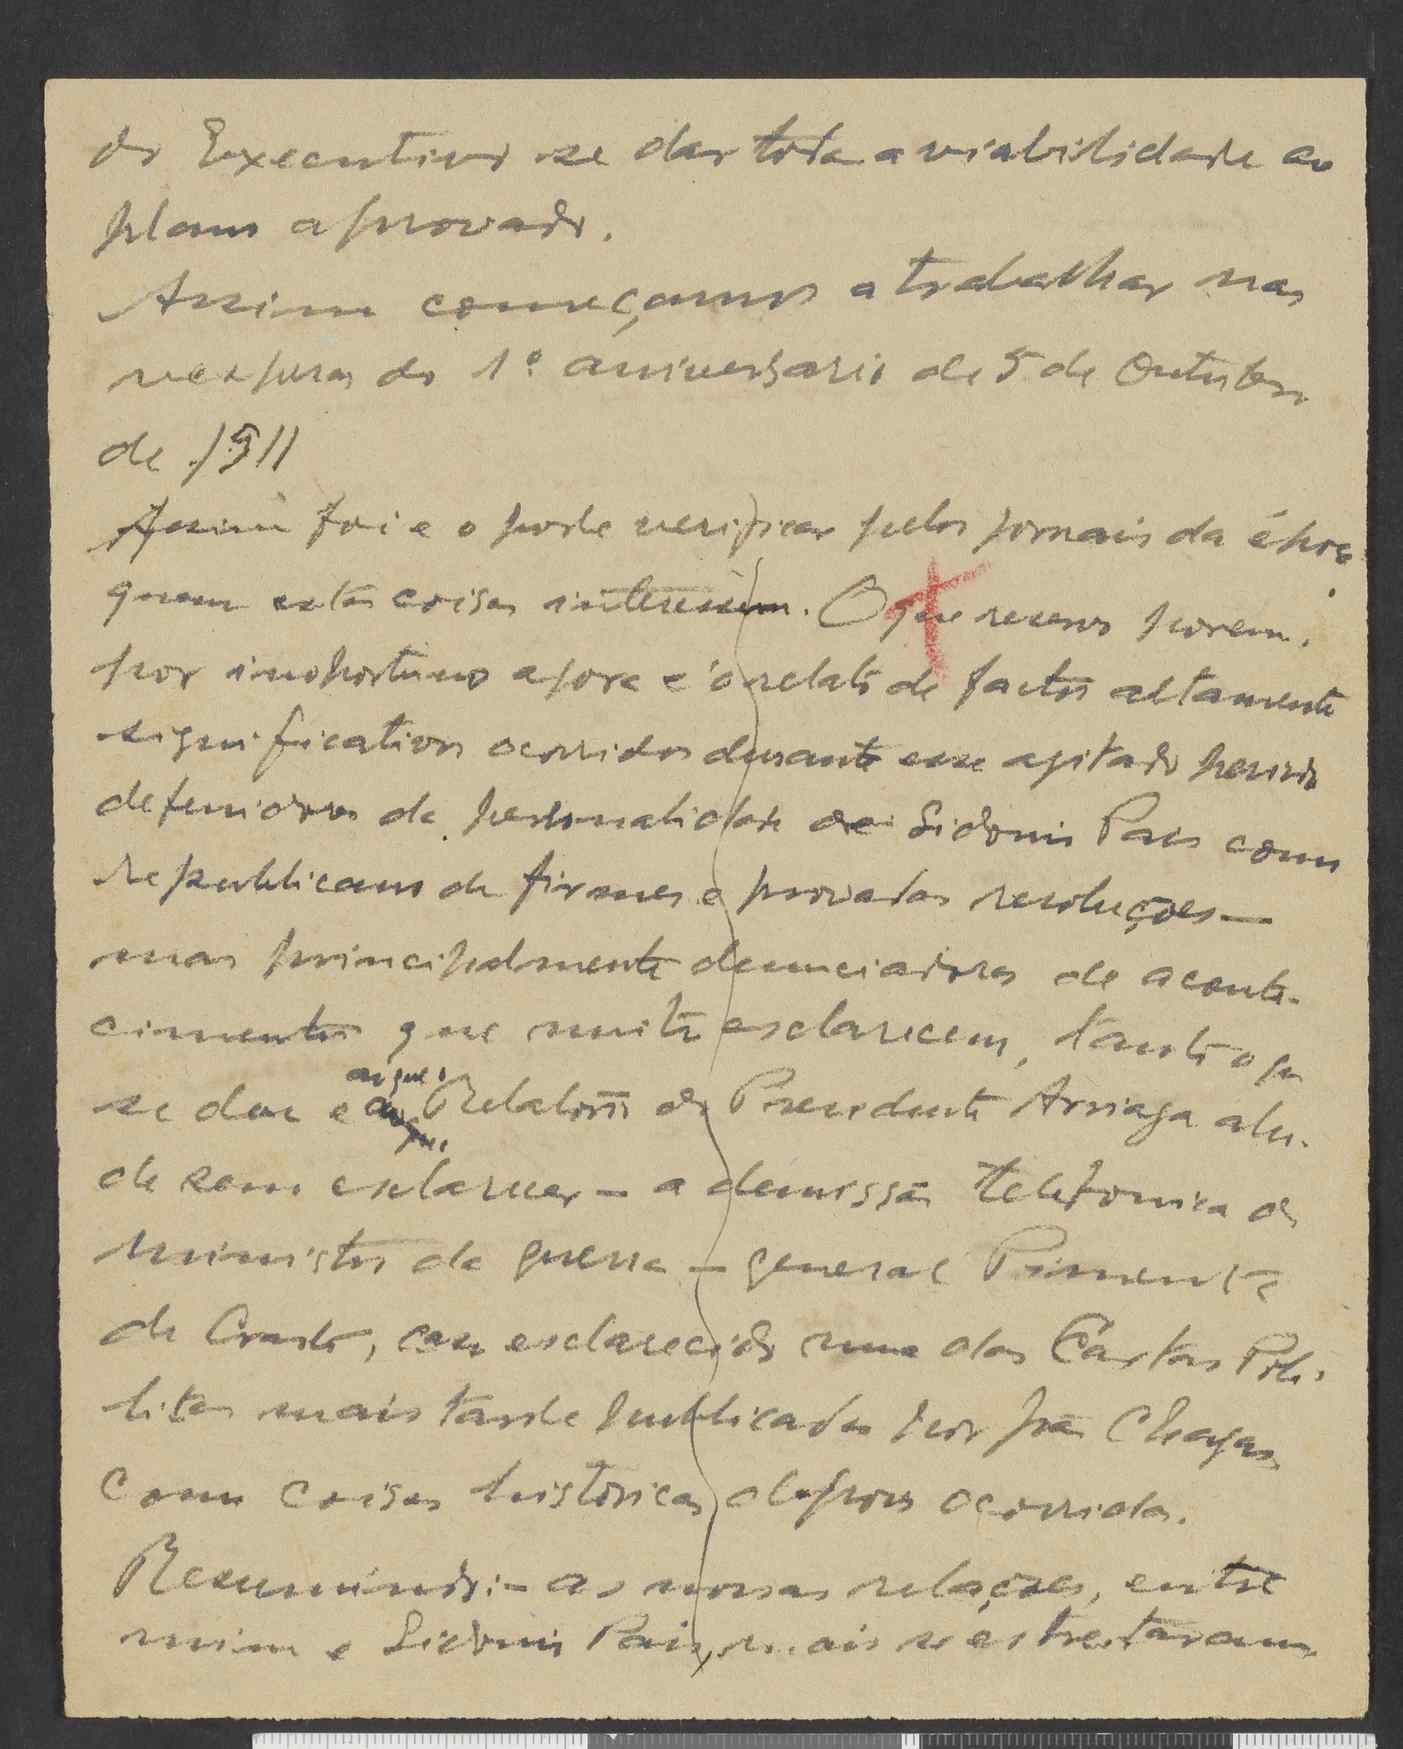 do Executivo se dar toda a viabilidade ao
plano aprovado.
Assim começamos a trabalhar nas
vesperas do 1º aniversario de 5 de Outubro
de 1911
Assim foi e o pode verificar pelos jornais da época
quem estas coisas interessem. O que reservo porem,
por inoportuno agora é o relato de factos altamente
significativos ocorridos durante esse agitado periodo
definidores da personalidade de Sidonio Pais como
republicano de firmes e provadas resoluções —
mas principalmente denunciadores de aconte-
cimentos que muito esclarecem, tanto o que
se deu e a que o Relatorio do Presidente Arriaga alu-
de sem esclarecer — a demissão telefonica do
ministro da guerra — general Pimenta
de Castro, caso esclarecido numa das Cartas Poli-
liticas mais tarde publicadas por João Chagas
como coisas historicas depois ocorridas.
Resumindo: — as nossas relações, entre
mim e Sidonio Pais, mais se estreitaram